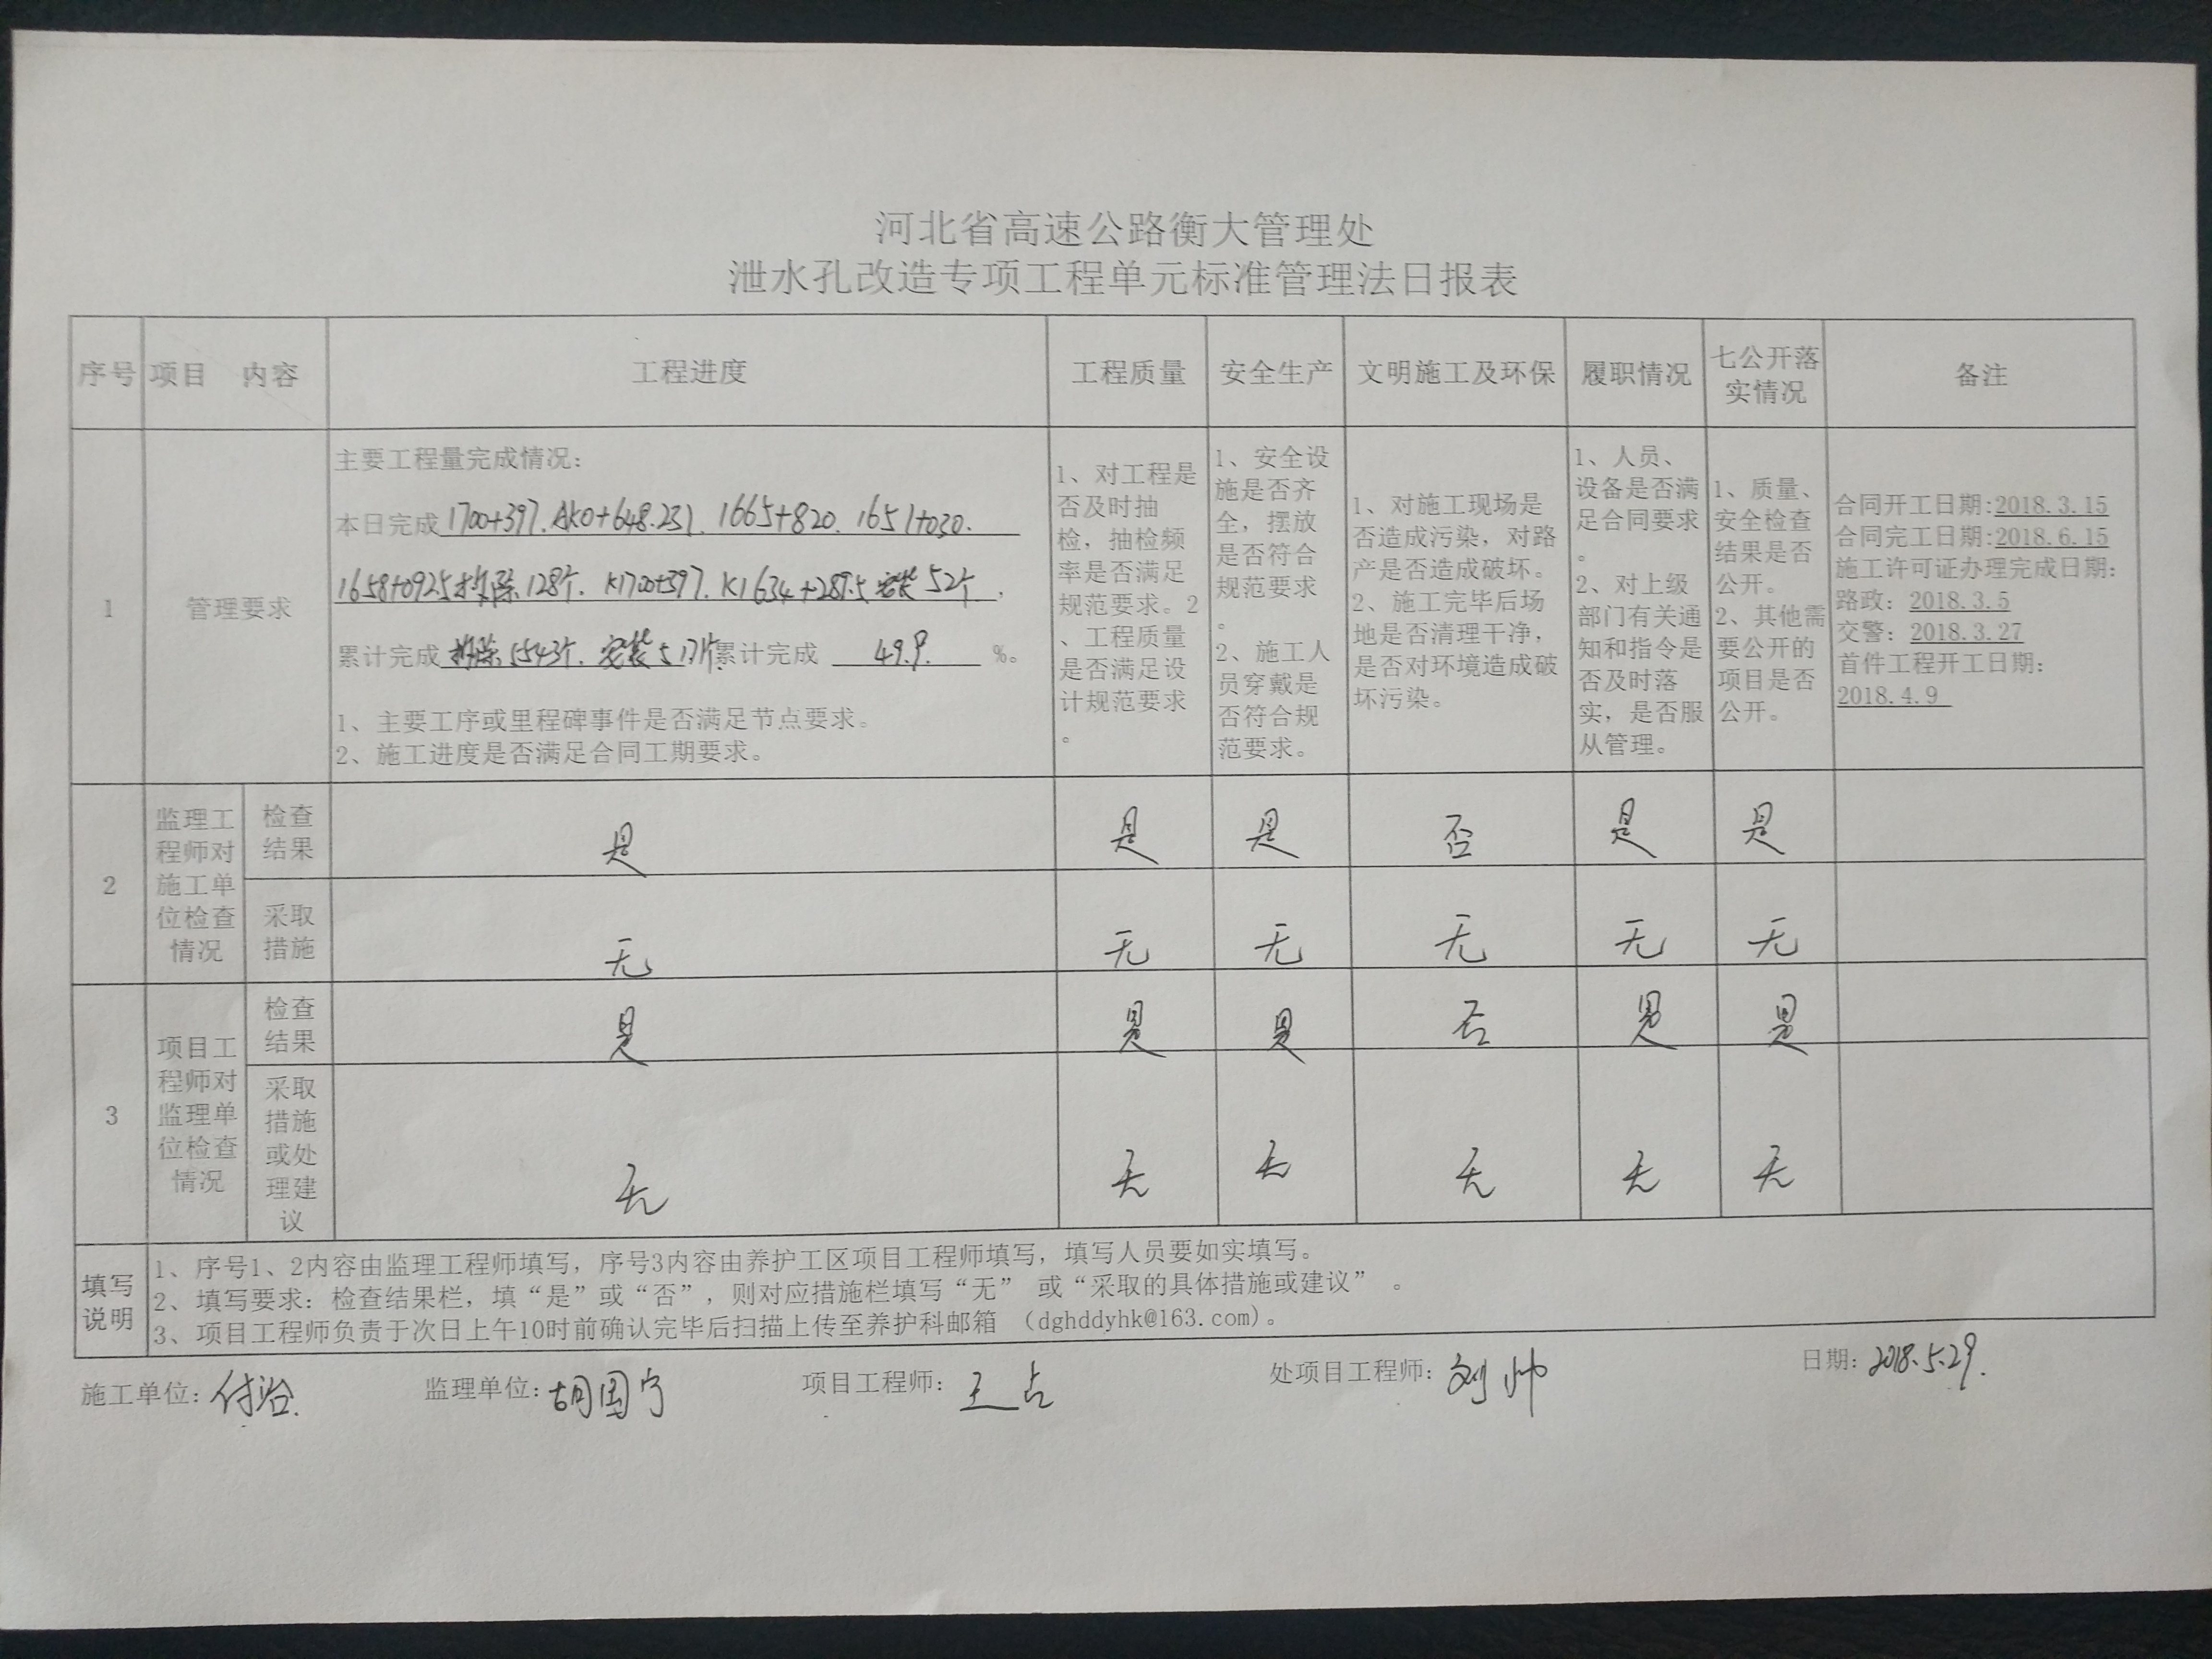 河北省高速公路衡大管理处
泄水孔改造专项工程单元标准管理法日报表
序号
项目 内容
工程进度
工程质量
安全生产
文明施工及环保
履职情况
七公开落
实情况
备注
1
管理要求
主要工程量完成情况:
本日完成 1700+397. AK0+648.231. 1665+820. 1651+030.
1658+0925拆除128个. K1700+397. K1634+287.5 安装52个.
累计完成 拆除5543个. 安装5171个.累计完成 49.9. %。
1、主要工序或里程碑事件是否满足节点要求。
2、施工进度是否满足合同工期要求。
1、对工程是
否及时抽
检，抽检频
率是否满足
规范要求。2
、工程质量
是否满足设
计规范要求
。
1、安全设
施是否齐
全，摆放
是否符合
规范要求
。
2、施工人
员穿戴是
否符合规
范要求。
1、对施工现场是
否造成污染，对路
产是否造成破坏。
2、施工完毕后场
地是否清理干净，
是否对环境造成破
坏污染。
1、人员、
设备是否满
足合同要求
。
2、对上级
部门有关通
知和指令是
否及时落
实，是否服
从管理。
1、质量、
安全检查
结果是否
公开。
2、其他需
要公开的
项目是否
公开。
合同开工日期:2018.3.15
合同完工日期:2018.6.15
施工许可证办理完成日期:
路政: 2018.3.5
交警: 2018.3.27
首件工程开工日期:
2018.4.9
2
监理工
程师对
施工单
位检查
情况
检查
结果
是
是
是
否
是
是
采取
措施
无
无
无
无
无
无
3
项目工
程师对
监理单
位检查
情况
检查
结果
是
是
是
否
是
是
采取
措施
或处
理建
议
无
无
无
无
无
无
填写
说明
1、序号1、2内容由监理工程师填写，序号3内容由养护工区项目工程师填写，填写人员要如实填写。
2、填写要求：检查结果栏，填“是”或“否”，则对应措施栏填写“无” 或“采取的具体措施或建议” 。
3、项目工程师负责于次日上午10时前确认完毕后扫描上传至养护科邮箱 （dghddyhk@163.com)。
施工单位: 付治
监理单位: 胡国宁
项目工程师: 王占
处项目工程师: 刘帅
日期: 2018.5.29.